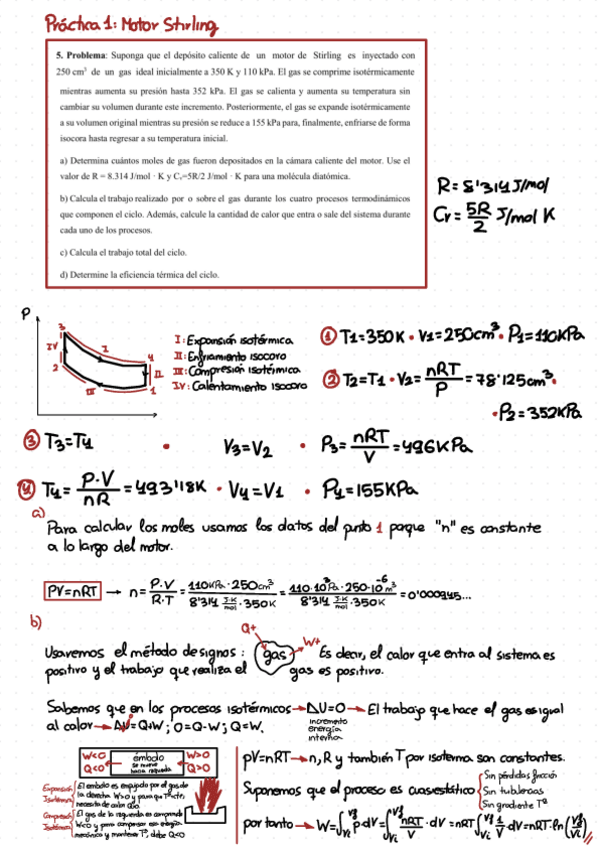 Práctica 1: Motor Stirling
5. Problema: Suponga que el depósito caliente de un motor de Stirling es inyectado con
250 cm³ de un gas ideal inicialmente a 350 K y 110 kPa. El gas se comprime isotérmicamente
mientras aumenta su presión hasta 352 kPa. El gas se calienta y aumenta su temperatura sin
cambiar su volumen durante este incremento. Posteriormente, el gas se expande isotérmicamente
a su volumen original mientras su presión se reduce a 155 kPa para, finalmente, enfriarse de forma
isocora hasta regresar a su temperatura inicial.
a) Determina cuántos moles de gas fueron depositados en la cámara caliente del motor. Use el
valor de R = 8.314 J/mol · K y Cᵥ=5R/2 J/mol · K para una molécula diatómica.
b) Calcula el trabajo realizado por o sobre el gas durante los cuatro procesos termodinámicos
que componen el ciclo. Además, calcule la cantidad de calor que entra o sale del sistema durante
cada uno de los procesos.
c) Calcula el trabajo total del ciclo.
d) Determine la eficiencia térmica del ciclo.
R = 8'314 J/mol
Cv = 5R/2 J/mol K
P
3
I
IV
4
2
II
III
1
I: Expansión isotérmica
II: Enfriamiento isocoro
III: Compresión isotérmica
IV: Calentamiento isocoro
① T1=350K • V1=250cm³ • P1=110KPa
② T2=T1 • V2= nRT/P =78'125cm³.
• P2=352KPa
③ T3=T4 • V3=V2 • P3= nRT/V =496KPa
④ T4= P·V/nR =493'18K • V4=V1 • P4=155KPa
a)
Para calcular los moles usamos los datos del punto 1 porque "n" es constante
a lo largo del motor.
PV=nRT → n= P·V/R·T = 110KPa·250cm³/8'314 J·K/mol ·350K = 110·10³Pa·250·10⁻⁶m³/8'314 J·K/mol ·350K =0'000945...
b)
Q+
W+
Usaremos el método de signos: gas Es decir, el calor que entra al sistema es
positivo y el trabajo que realiza el gas es positivo.
Sabemos que en los procesos isotérmicos → ΔU=0 → El trabajo que hace el gas es igual
al calor → ΔU=Q+W; 0=Q-W; Q=W.
incremento
energía
interna
W<0 émbolo W>0
Q<0 se mueve hacia izquierda Q>0
Expansión Isotérmica
El embolo es empujado por el gas de
la derecha W>0 y para que Tª=cte,
necesita de calor Q>0
Compresión Isotérmica
El gas de la izquierda es comprimido
W<0 y para compensar esa energía
mecánica y mantener Tª, debe Q<0
pV=nRT → n, R y también T por isoterma son constantes.
Suponemos que el proceso es cuasiestático
Sin pérdidas fricción
Sin turbulencias
Sin gradiente Tª
por tanto → W=∫Vi Vf p·dV=∫Vi Vf nRT/V ·dV=nRT∫Vi Vf 1/V dV=nRT·ln(Vf/Vi)